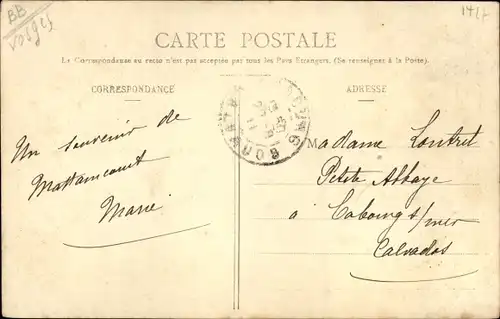 BB
Vosges
CARTE POSTALE
La Correspondance au recto n'est pas acceptée par tous les Pays Étrangers. (Se renseigner à la Poste).
CORRESPONDANCE
ADRESSE
Un souvenir de
Mattaincourt
Marie
Madame
Petite Abbaye
à Cabourg s/mer
Calvados